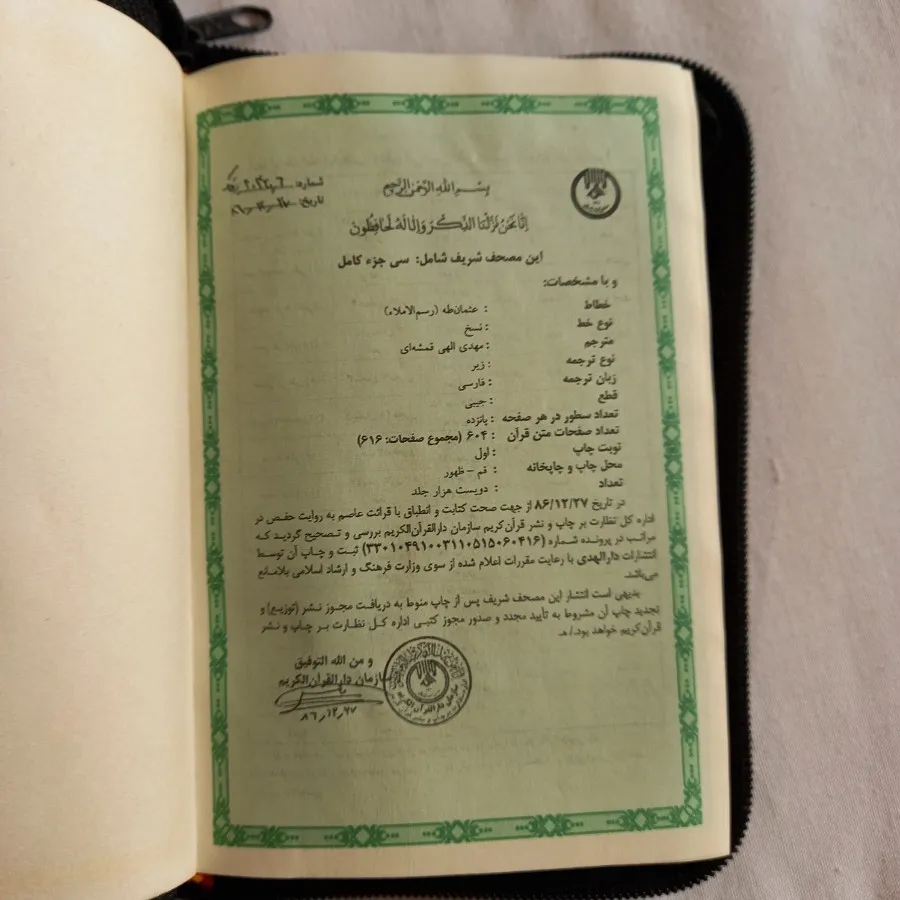 شماره:
تاریخ: ۸۶-۱۲-۲۷
بِسْمِ اللهِ الرَّحْمنِ الرَّحیمِ
اِنّا نَحْنُ نَزَّلْنَا الذِّكْرَ وَاِنّا لَهُ لَحافِظُونَ
این مصحف شریف شامل: سی جزء کامل
و با مشخصات:
خطاط : عثمان‌طه (رسم‌الاملاء)
نوع خط : نسخ
مترجم : مهدی الهی قمشه‌ای
نوع ترجمه : زیر
زبان ترجمه : فارسی
قطع : جیبی
تعداد سطور در هر صفحه : پانزده
تعداد صفحات متن قرآن : ۶۰۴ (مجموع صفحات: ۶۱۶)
نوبت چاپ : اول
محل چاپ و چاپخانه : قم - ظهور
تعداد : دویست هزار جلد
در تاریخ ۸۶/۱۲/۲۷ از جهت صحت کتابت و انطباق با قرائت عاصم به روایت حفص در
اداره کل نظارت بر چاپ و نشر قرآن‌کریم سازمان دارالقرآن‌الکریم بررسی و تصحیح گردید که
مراتب در پرونده شماره (۳۳۰۱۰۴۹۱۰۰۳۱۱۰۵۱۵۰۶۰۴۱۶) ثبت و چاپ آن توسط
انتشارات دارالهدی با رعایت مقررات اعلام شده از سوی وزارت فرهنگ و ارشاد اسلامی بلامانع
می‌باشد.
بدیهی است انتشار این مصحف شریف پس از چاپ منوط به دریافت مجوز نشر (توزیع) و
تجدید چاپ آن مشروط به تأیید مجدد و صدور مجوز کتبی اداره کل نظارت بر چاپ و نشر
قرآن‌کریم خواهد بود./ هـ
و من الله التوفیق
سازمان دارالقرآن‌الکریم
۸۶,۱۲,۲۷
سازمان دارالقرآن الکریم